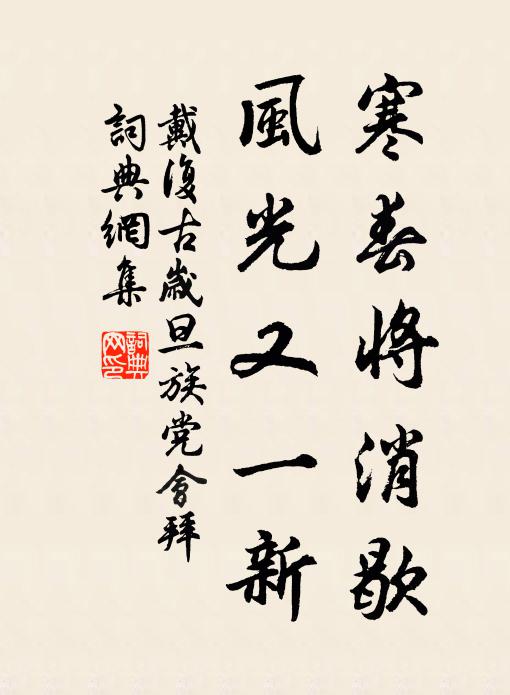 寒春將消歇
風光又一新
戴復古歲旦族党會拜
詞典網集
詞典网印